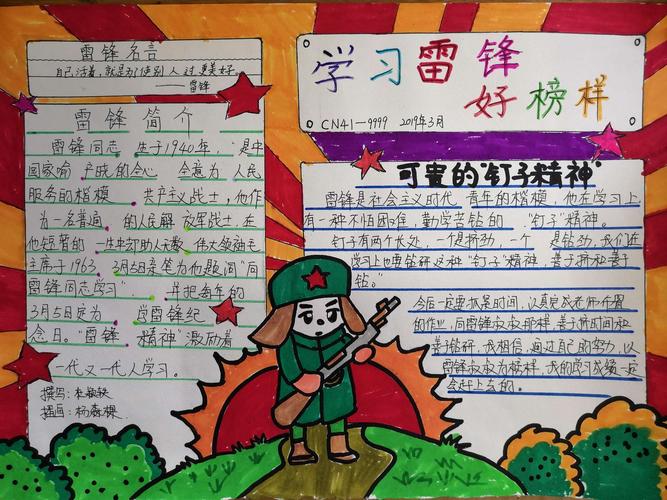 雷锋名言
自己活着,就是为了使别人过更美好
——雷锋
雷锋简介
雷锋同志 生于1940年,是中
国家喻户晓的 全意为人民
服务的楷模 共产主义战士,他作
为一名普通 的人民解放军战士,在
他短暂的一生中帮助 伟大领袖毛
主席于1963 3月5日亲笔为他题词"向
雷锋同志学习" 并把每年的
3月5日定为 学雷锋纪
念日。"雷锋 精神"激励着
一代又一代人学习。
撰写:
插画:
学习雷锋
好榜样
CN41-9999 2019年3月
可贵的"钉子精神"
雷锋是社会主义时代青年的楷模,他在学习上
有一种不怕困难,勤学苦钻的 "钉子"精神。
钉子有两个长处,一个是挤劲,一个 是钻劲,我们在
学习上也要钻研这种"钉子"精神,善于挤和善于
钻。
今后一定要抓紧时间,认真完成老师
的作业,向雷锋叔叔那样,善于挤时间和
善于钻研,我相信,通过自己的努力,以
雷锋叔叔为榜样,我的学习成绩一定
会赶上去的。